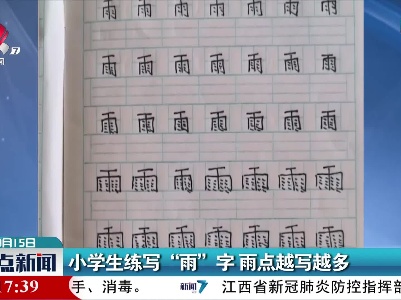 7
闻
雨 雨 雨 雨 雨 雨 雨
雨 雨 雨 雨 雨 雨 雨
雨 雨 雨 雨 雨 雨 雨
雨 雨 雨 雨 雨 雨 雨
雨 雨 雨 雨 雨 雨 雨
月15日
点新闻
小学生练写“雨”字 雨点越写越多
17:39
手、消毒。 新闻7 江西省新冠肺炎防控指挥部